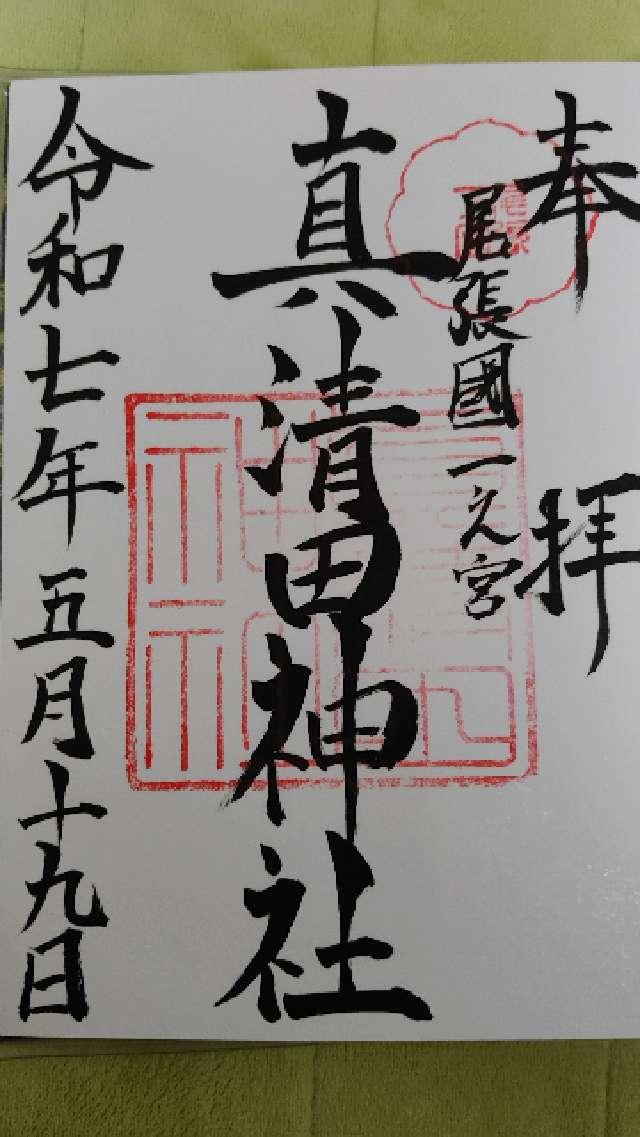 奉拝
尾張國一之宮
真清田神社
令和七年五月十九日